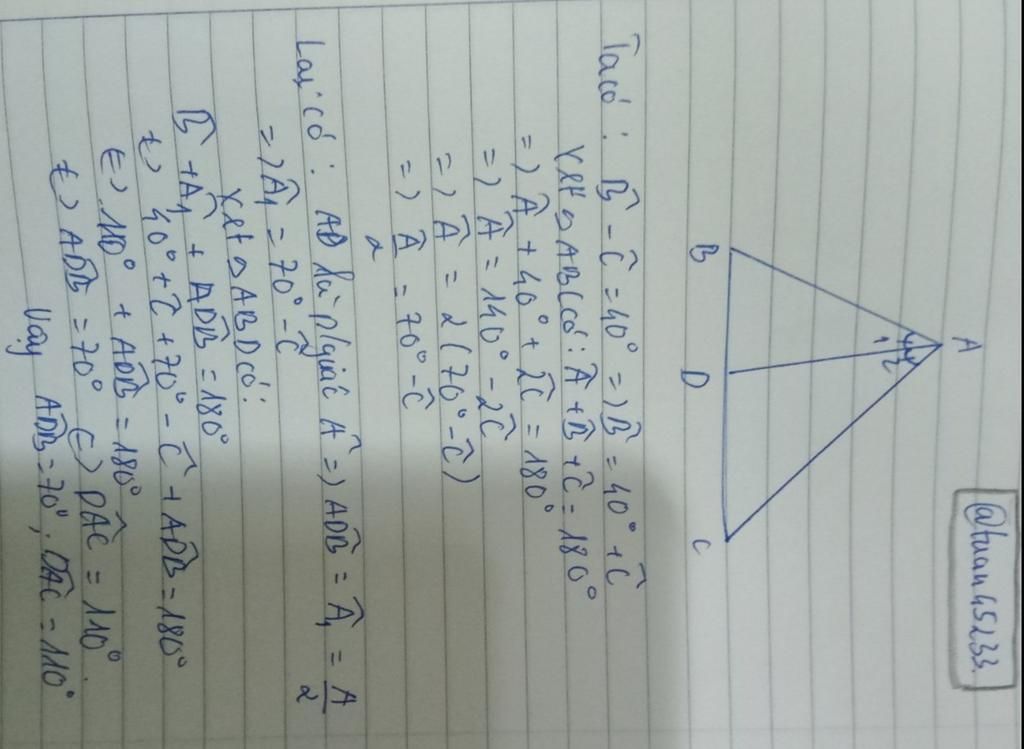 @tuan45233.
A
1 2
B D C
Ta có : B̂ - Ĉ = 40° => B̂ = 40° + Ĉ
Xét △ABC có : Â + B̂ + Ĉ = 180°
=> Â + 40° + 2Ĉ = 180°
=> Â = 140° - 2Ĉ
=> Â = 2(70° - Ĉ)
=> Â/2 = 70° - Ĉ
Lại có : AD là p/giác Â => ADB̂ = Â₁ = A/2
=> Â₁ = 70° - Ĉ
Xét △ABD có :
B̂ + Â₁ + ADB̂ = 180°
(=) 40° + Ĉ + 70° - Ĉ + ADB̂ = 180°
(=) 110° + ADB̂ = 180°
(=) ADB̂ = 70° (=) DAĈ = 110°.
Vậy ADB̂ = 70°, DAĈ = 110°